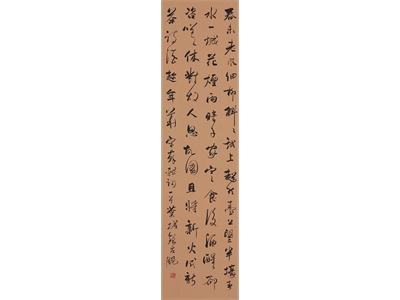 春未老風細柳斜〻試上超然臺上望半壕春
水一城花煙雨暗千家寒食後酒醒卻
咨嗟休對故人思故國且將新火試新
茶詩酒趁年華 宋蘇軾詞一